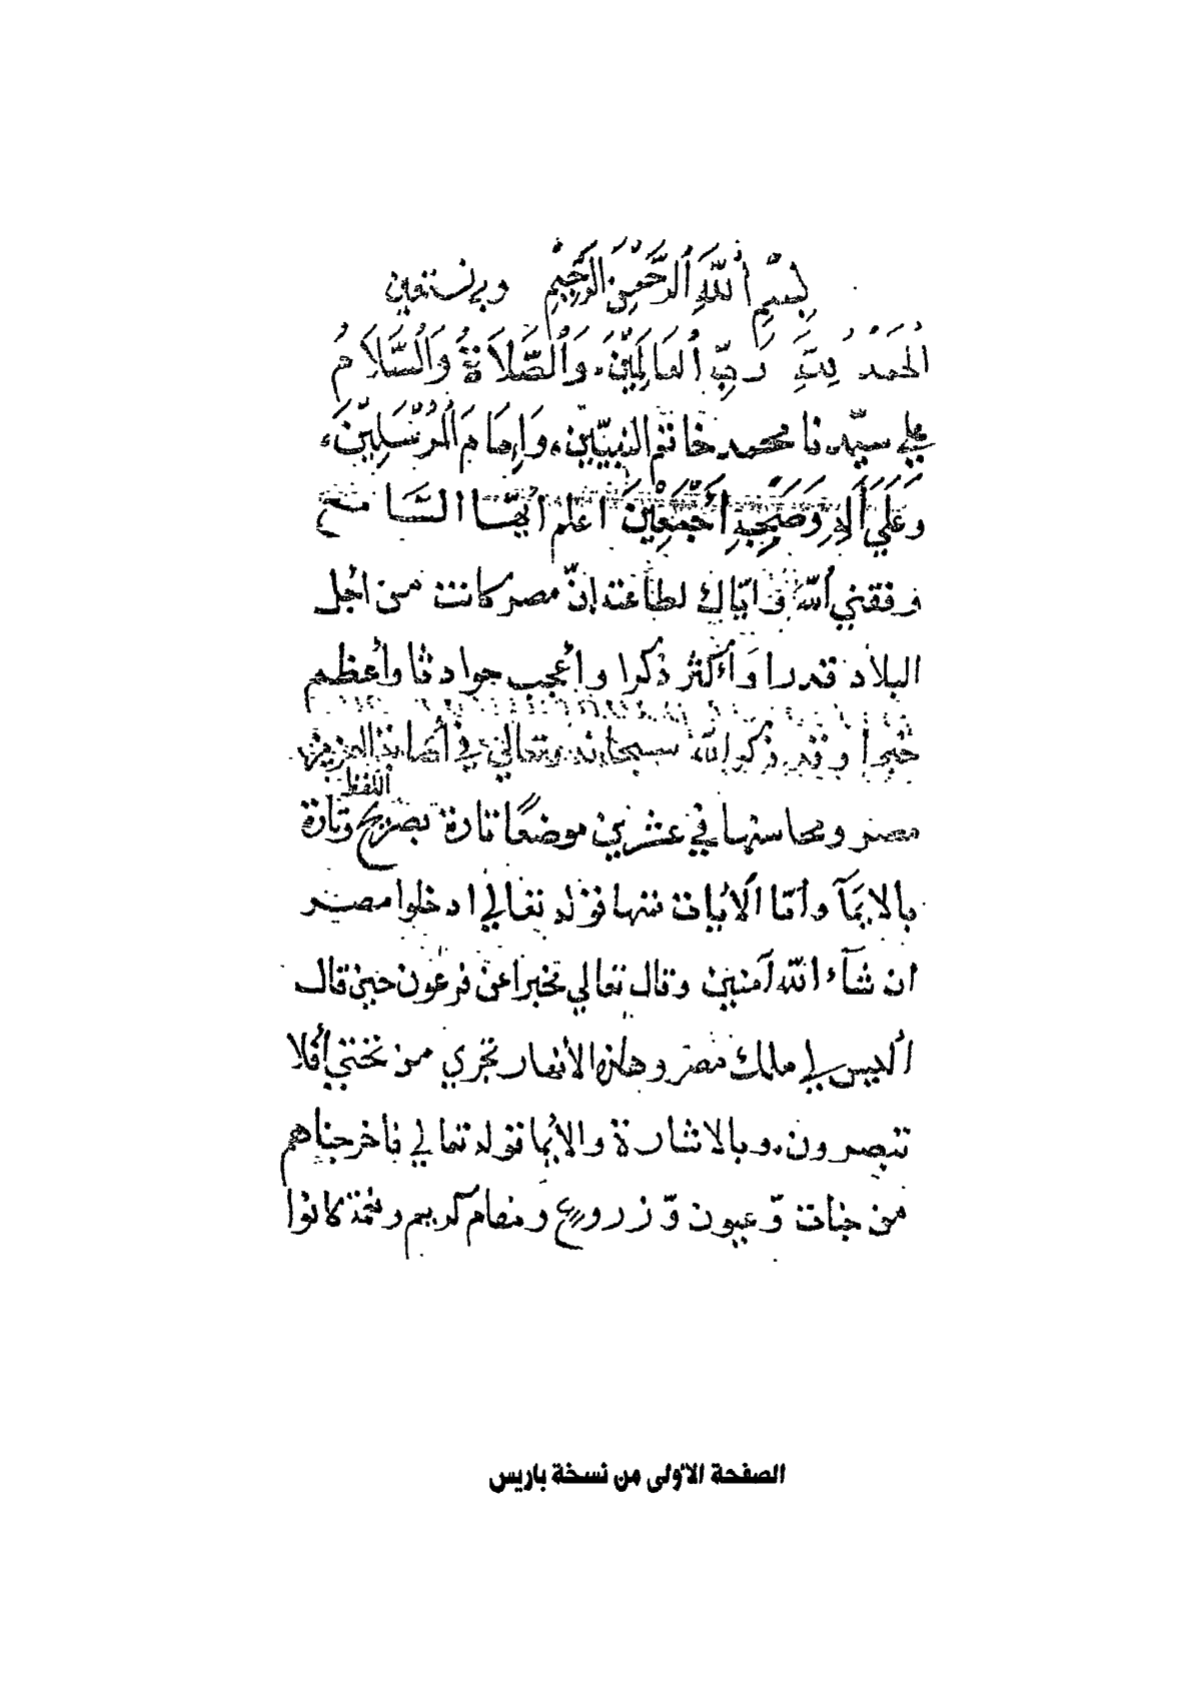 بِسْمِ اللَّهِ الرَّحْمٰنِ الرَّحِيْمِ وبه نستعين
اَلْحَمْدُ لِلَّهِ رَبِّ الْعَالَمِيْنَ، وَالصَّلَاةُ وَالسَّلَامُ
علي سيّدنا محمد خاتم النبيّين، وَإِمَامَ الْمُرْسَلِيْنَ،
وَعَلَي أَلِهِ وَصَحْبِهِ أَجْمَعِيْنَ اعلم أيّها السَّامع
وفقني اللّه وايّاك لطاعته إنّ مصر كانت من اجل
البلاد قدرا وأكثر ذكرا وأعجب حوادثا وأعظم
خبرا وقد ذكر الله سبحانه وتعالي في كتابه العزيز
مصر ومحاسنها في عشرين موضعًا تارة بصريح اللفظ وتارة
بالايمآ وأمّا الآيات فمنها قوله تعالي ادخلوا مصر
ان شآء اللّه آمنين وقال تعالي مخبرا عن فرعون حين قال
أليس لي ملك مصر وهذه الأنهار تجري من تحتي أفلا
تبصرون، وبالاشارة والايما قوله تعالي فاخرجناهم
من جنات وّعيون وّزروع ومقام كريم ونعمة كانوا
الصفحة الأولى من نسخة باريس